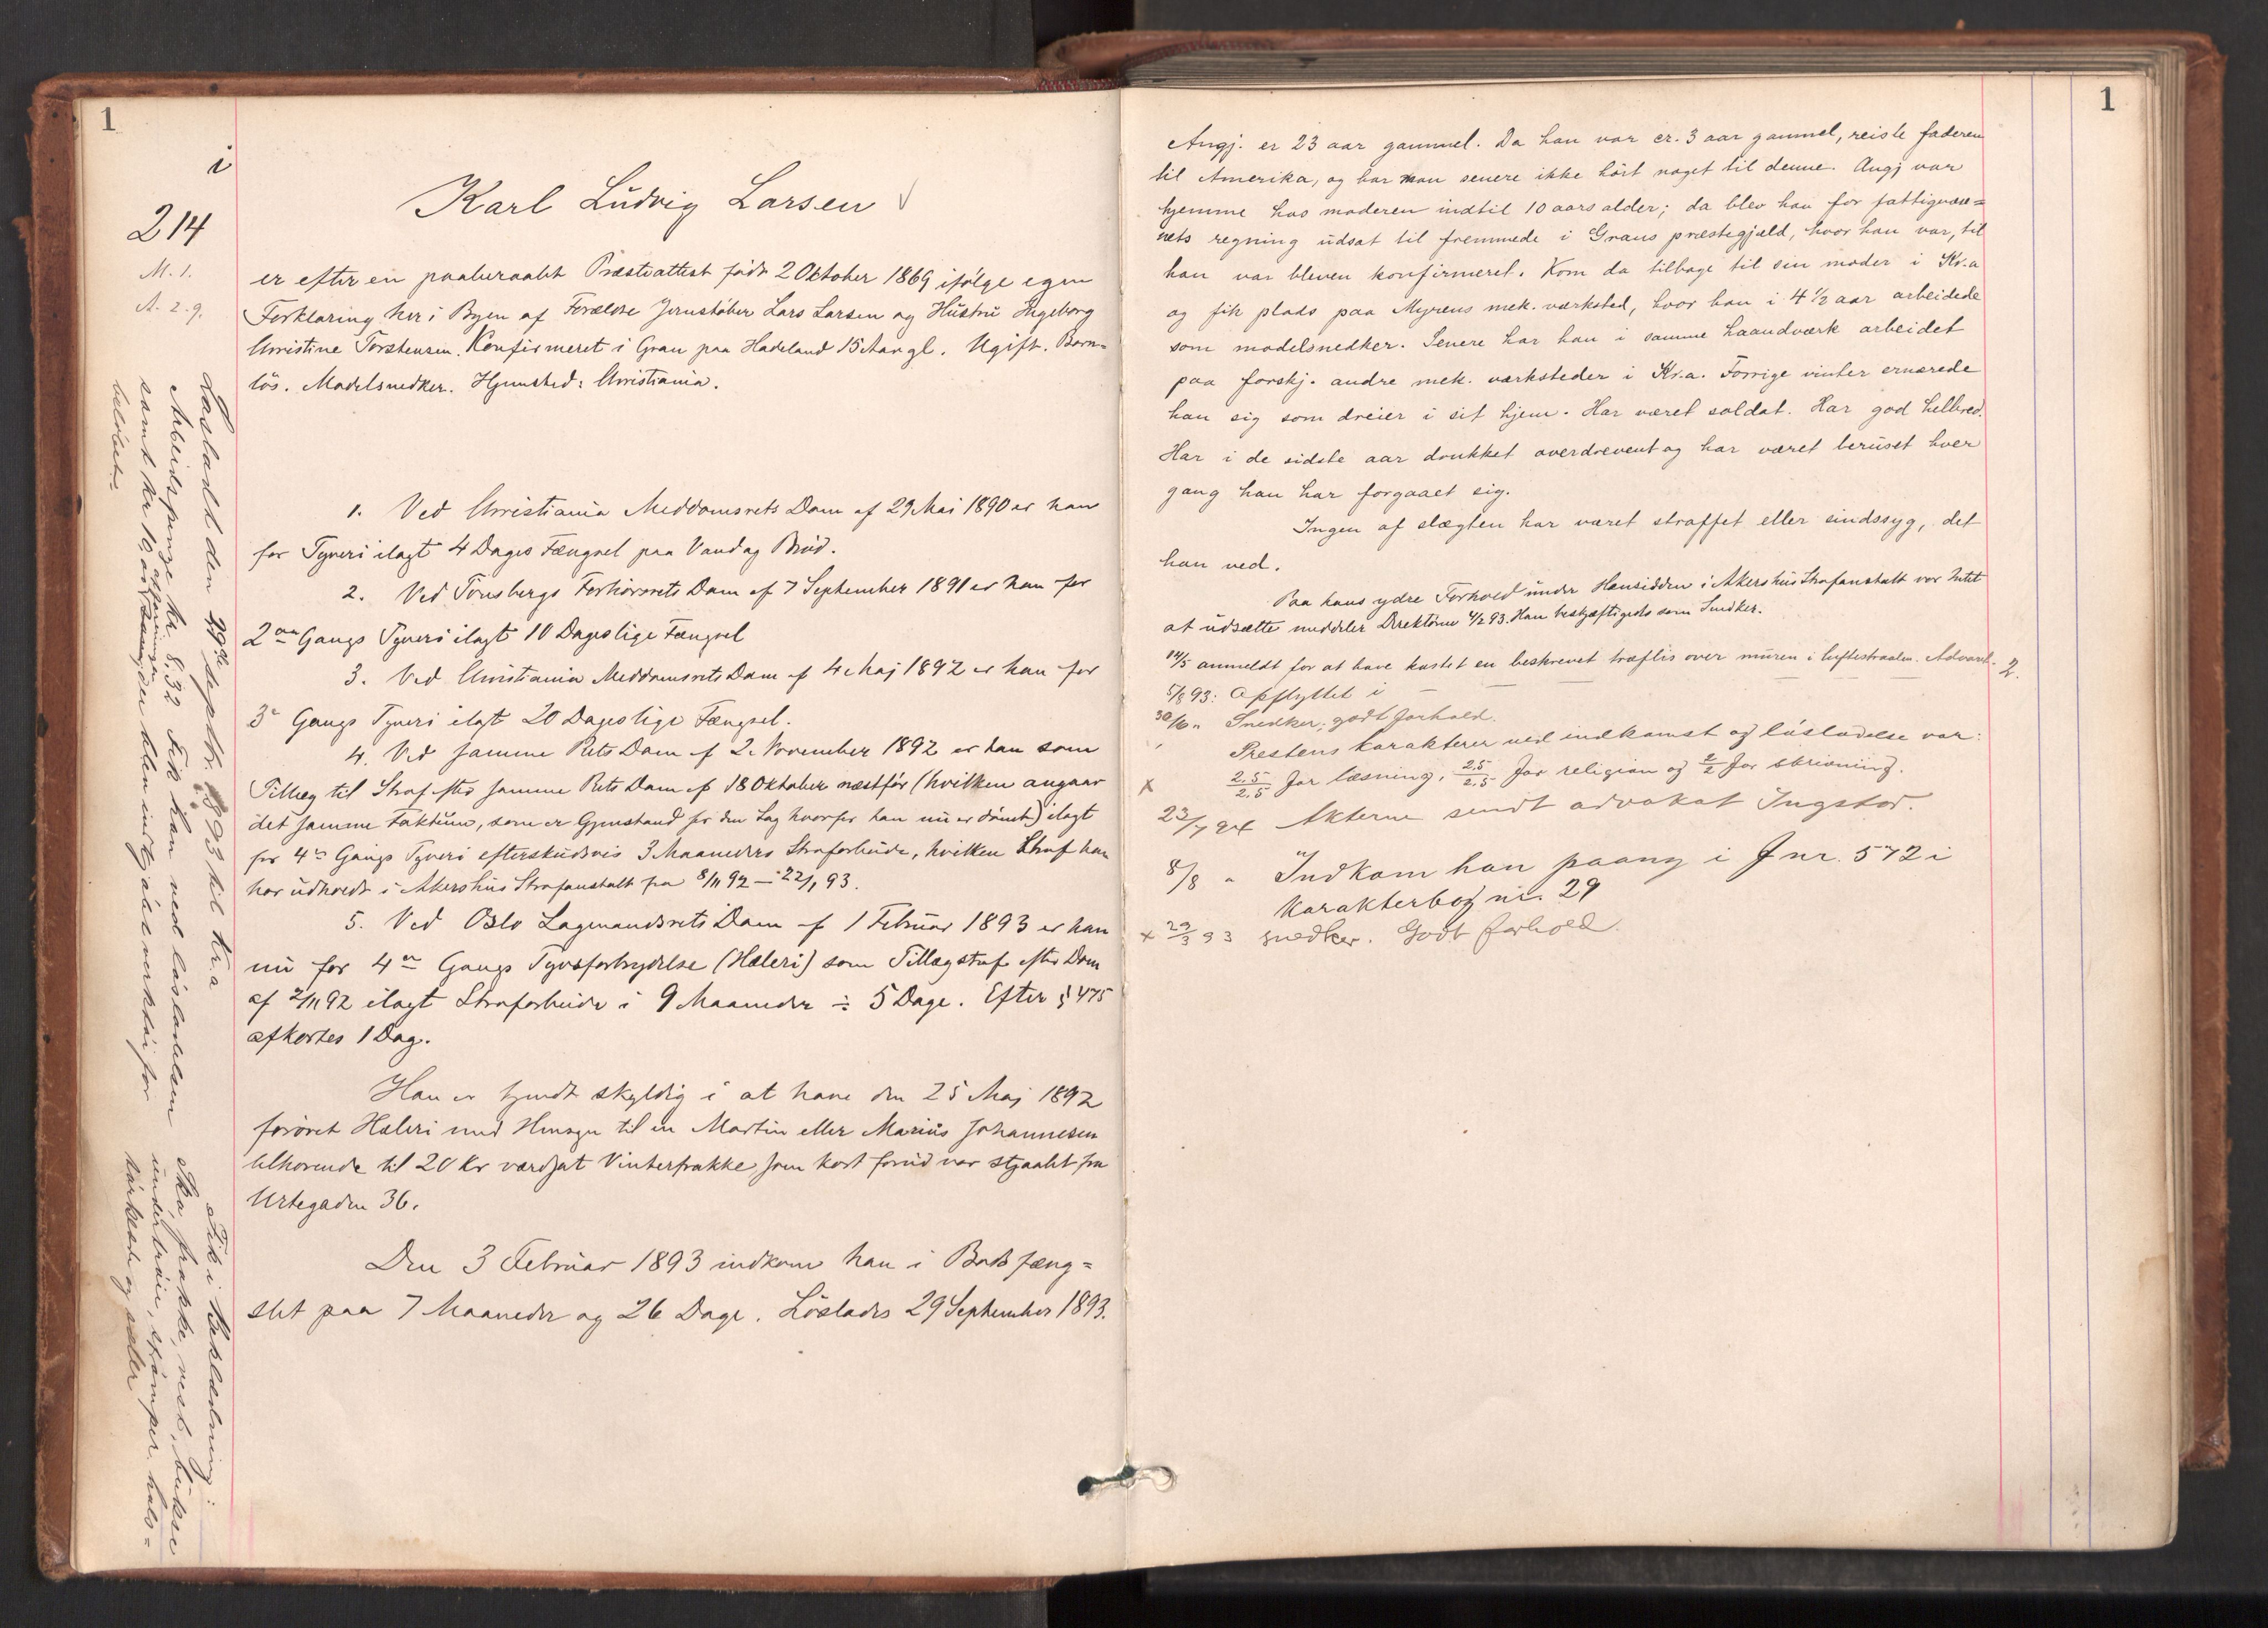 1
i
214
M. 1.
A. 2. g.
Karl Ludvig Larsen
er efter en paaberaabt Præsteattest født 2 Oktober 1869 ifølge egen
Forklaring her i Byen af Forældre Jernstøber Lars Larsen og Hustru Ingeborg
Christine Torstensen. Konfirmeret i Gran paa Hadeland 15 Aar gl. Ugift. Barn=
løs. Modelsnedker. Hjemsted: Christiania.
1. Ved Christiania Meddomsrets Dom af 29 Mai 1890 er han
for Tyveri ilagt 4 Dages Fængsel paa Vand og Brød.
2. Ved Tønsbergs Forhørsrets Dom af 7 September 1891 er han for
2den Gangs Tyveri ilagt 10 Dages lige Fængsel
3. Ved Christiania Meddomsrets Dom af 4 Maj 1892 er han for
3e Gangs Tyveri ilagt 20 Dages lige Fængsel.
4. Ved samme Rets Dom af 2. November 1892 er han som
Tillæg til Straf efter samme Rets Dom af 18 Oktober næstfør (hvilken angaar
det samme Faktum, som er Gjenstand for den Sag hvorfor han nu er dømt) ilagt
for 4de Gangs Tyveri efterskudsvis 3 Maaneders Strafarbeide, hvilken Straf han
har udholdt i Akershus Strafanstalt fra 8/11 92 – 22/1 93.
5. Ved Oslo Lagmandsrets Dom af 1 Februar 1893 er han
nu for 4de Gangs Tyvsforbrydelse (Hæleri) som Tillægstraf efter Dom
af 2/11 92 ilagt Strafarbeide i 9 Maaneder ÷ 5 Dage. Efter § 475
afkortes 1 Dag.
Han er kjendt skyldig i at have den 25 Maj 1892
forøvet Hæleri med Hensyn til en Martin eller Marius Johannesen
tilhørende til 20 Kr værdsat Vinterfrakke som kort forud var stjaalet fra
Urtegaden 36.
Den 3 Februar 1893 indkom han i Bodsfæng=
slet paa 7 Maaneder og 26 Dage. Løslades 29 September 1893.
Løsladt den 29de septbr. 1893 til Kr.a
Arbeidspenge kr. 8,32 Fik han ved løsladelsen
samt kr 10,00
hvorfor blev indkjøbt verktøi for
beløbet.
Fik i beklædning:
Sko, frakke, vest, bukse
undertrøie, strømper, hals=
tørklæde og seler
1
Angj. er 23 aar gammel. Da han var cr. 3 aar gammel, reiste faderen
til Amerika, og har man senere ikke hört noget til denne. Angj var
hjemme hos moderen indtil 10 aars alder; da blev han for fattigvæs=
nets regning udsat til fremmede i Grans præstegjæld, hvor han var, til
han var bleven konfirmeret. Kom da tilbage til sin moder i Kr.a
og fik plads paa Myrens mek. værksted, hvor han i 4 ½ aar arbeidede
som modelsnedker. Senere har han i samme haandværk arbeidet
paa forskj. andre mek. værksteder i Kr.a. Forrige vinter ernærede
han sig som dreier i sit hjem. Har været soldat. Har god helbred.
Har i de sidste aar drukket overdrevent og har været beruset hver
gang han har forgaaet sig.
Ingen af slægten har været straffet eller sindssyg, det
han ved.
Paa hans ydre Forhold under Hensidden i Akershus Strafanstalt var Intet
at udsætte meddeler Direktøren 4/2 93. Han beskjæftigedes som Snedker.
14/5 anmeldt for at have kastet en beskrevet træflis over muren i luftestraalen. Advaret.
2.
5/8 93: Opflyttet i
30/6 " Snedker; godt forhold.
Prestens karakterer ved indkomst og løsladelse var:
2.5/2.5 for læsning, 2.5/2.5 for religion og 2/2 for skrivning.
x
23/7 94 Akterne sendt advokat Ingstad.
8/8 " Indkom han paany i J nr. 572 i
karakterbog nr. 29
x 29/3 93 snedker. Godt forhold.